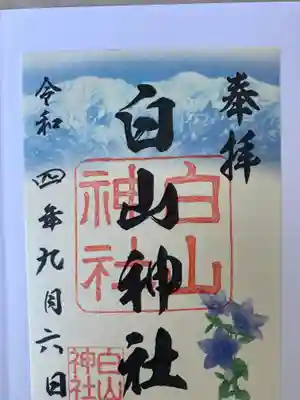 奉拝
白山神社
白山
神社
令和四年九月六日
白山
神社